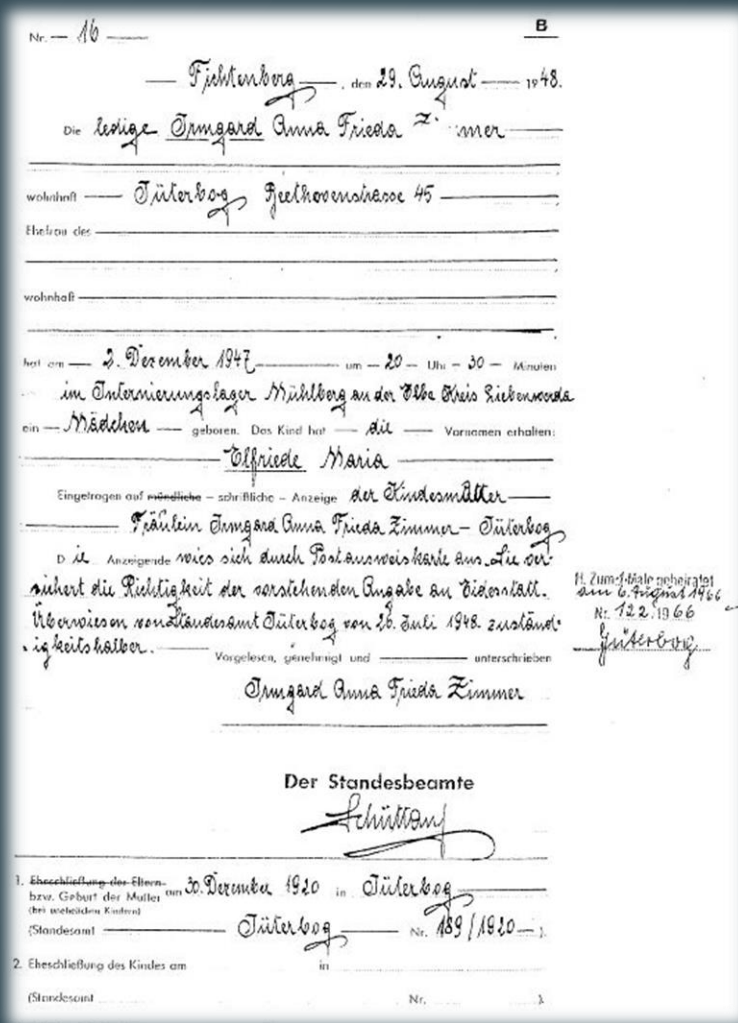 B
Nr. — 16 —
— Fichtenberg —, den 29. August — 1948.
Die ledige Irmgard Anna Frieda Z mer —
wohnhaft — Jüterbog Beethovenstrasse 45 —
Ehefrau des —
wohnhaft —
hat am — 2. Dezember 1947 — um — 20 — Uhr — 30 — Minuten
im Internierungslager Mühlberg an der Elbe Kreis Liebenwerda
ein — Mädchen — geboren. Das Kind hat — die — Vornamen erhalten:
— Elfriede Maria —
Eingetragen auf mündliche – schriftliche – Anzeige der Kindesmutter —
— Fräulein Irmgard Anna Frieda Zimmer – Jüterbog
Die Anzeigende wies sich durch Postausweiskarte aus. Sie ver-
sichert die Richtigkeit der vorstehenden Angabe an Eidesstatt.
Überwiesen von Standesamt Jüterbog von 26. Juli 1948. zuständ-
igkeitshalber. — Vorgelesen, genehmigt und — unterschrieben
Irmgard Anna Frieda Zimmer
H. Zum 1. Male geheiratet
am 6. August 1966
Nr. 122.1966
Jüterbog
Der Standesbeamte
Schüttauf
1. Eheschließung der Eltern
bzw. Geburt der Mutter am 30. Dezember 1920 in Jüterbog —
(bei unehelichen Kindern)
(Standesamt — Jüterbog — Nr. 189/1920 —).
2. Eheschließung des Kindes am in
(Standesamt Nr. ).